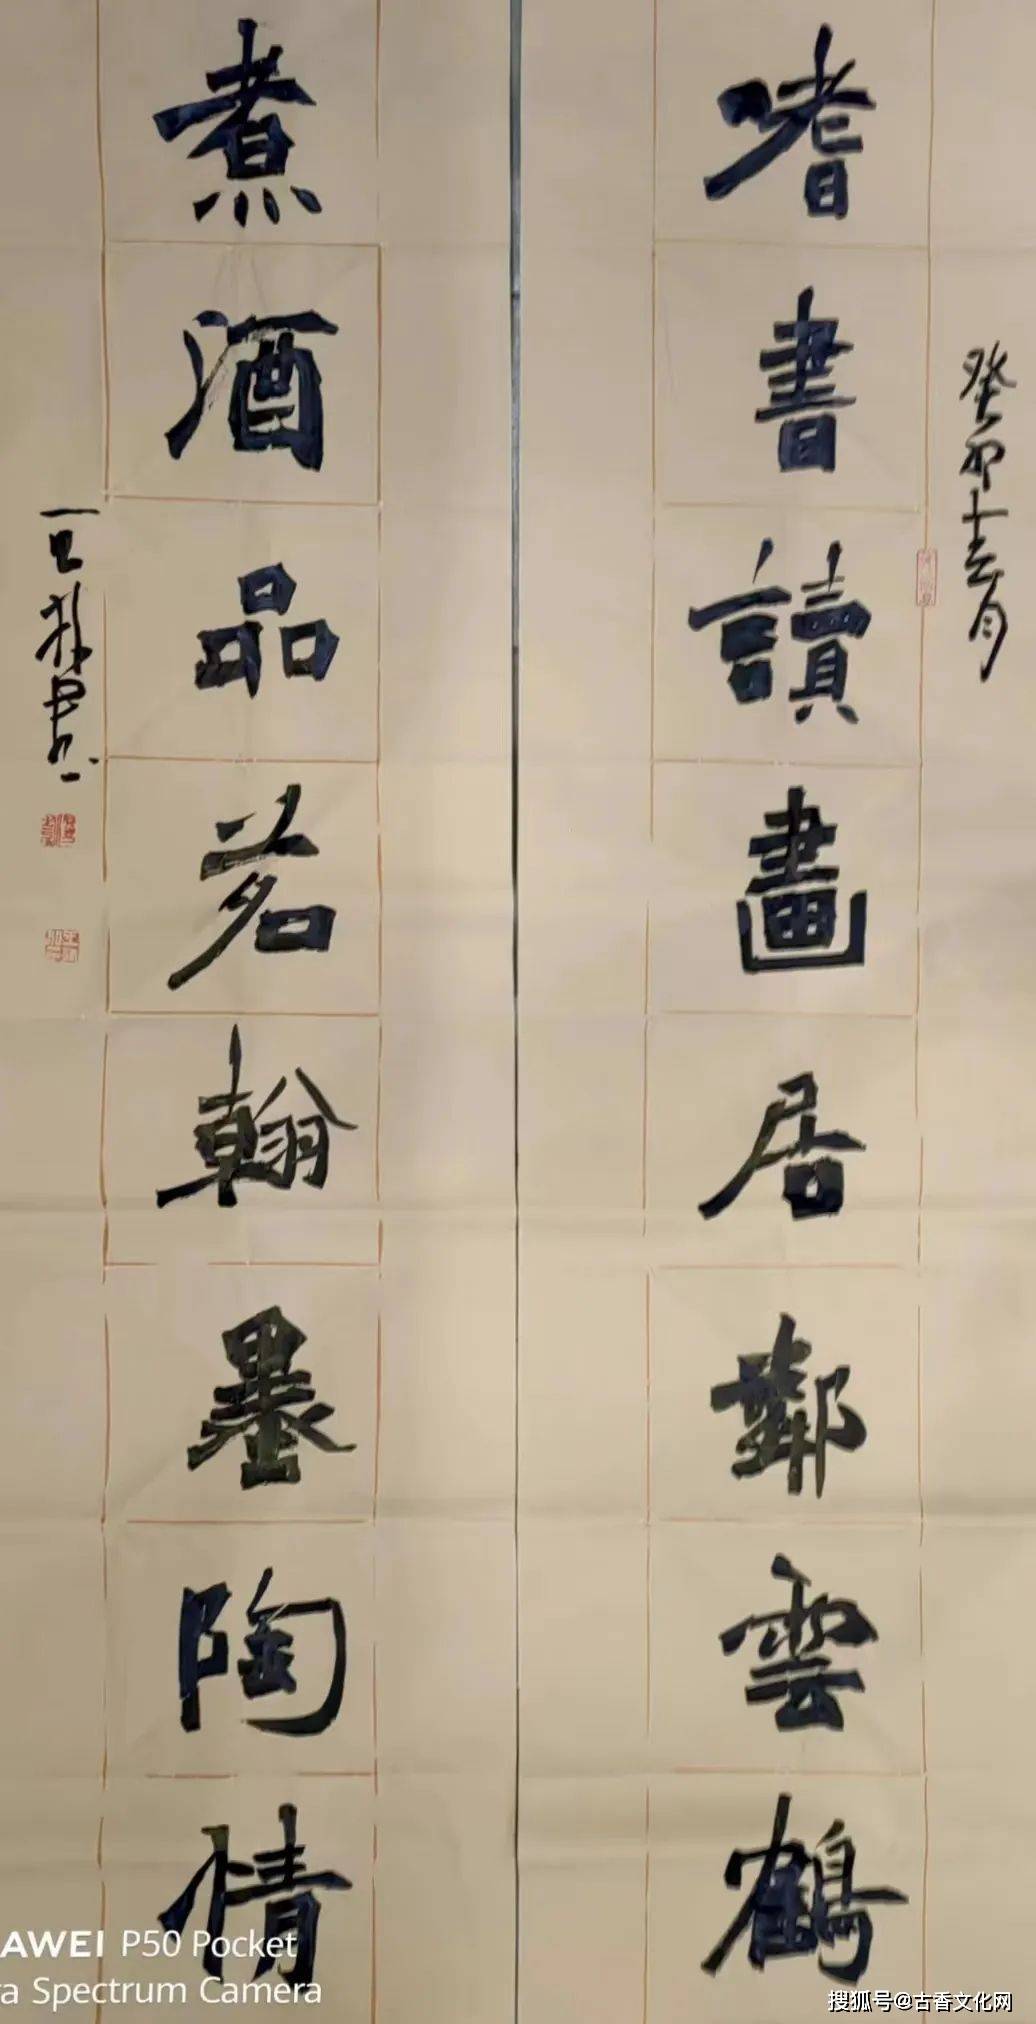 癸卯十二月
嗜書讀畫居鄰雲鶴
煮酒品茗翰墨陶情
AWEI P50 Pocket
ra Spectrum Camera
搜狐号@古香文化网